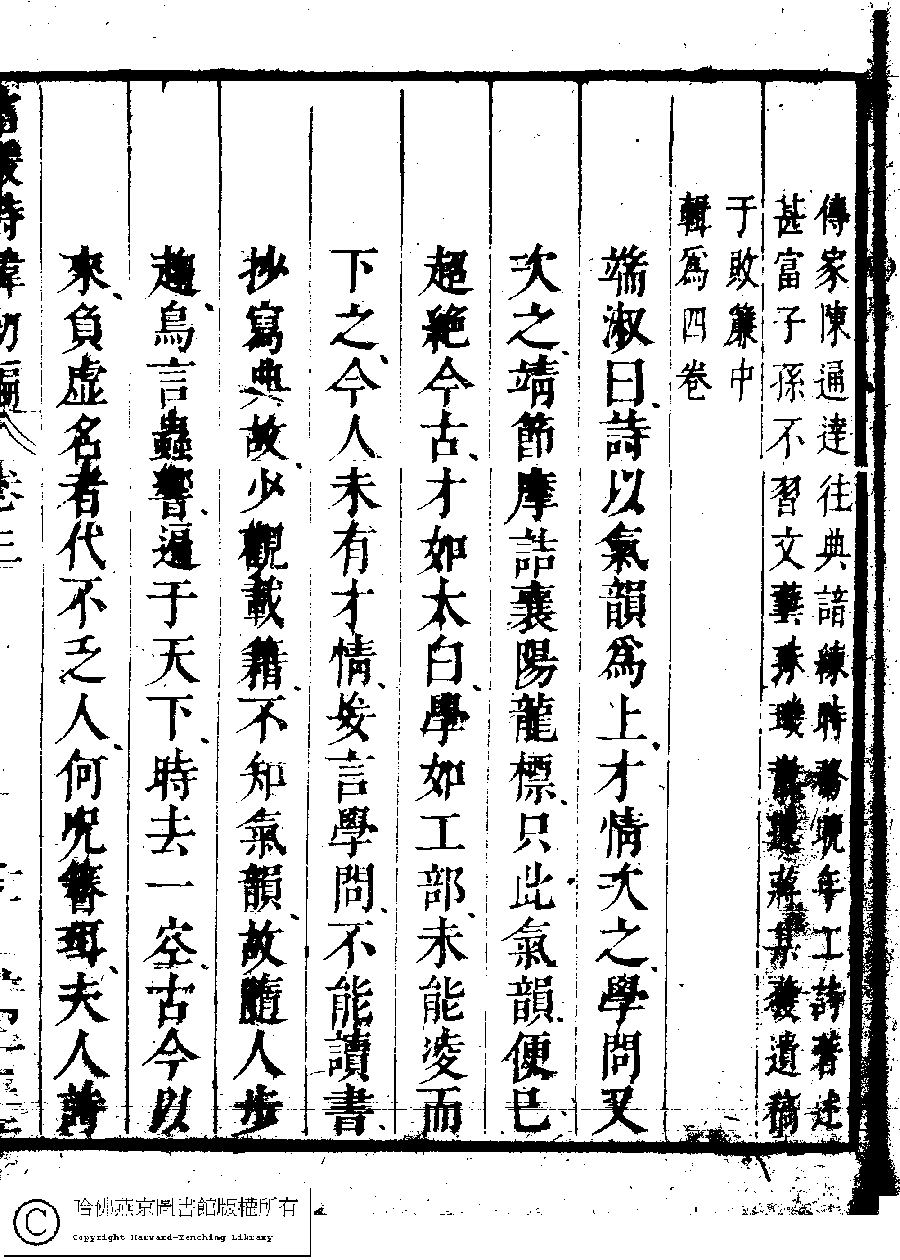 傳家陳遍達往典諳練時務晚年工詩著述
甚富子孫不習文藝珠璣散墜蔣某發遺稿
于敗簾中
輯爲四卷
端淑曰詩以氣韻爲上才情次之學問又
次之靖節摩詰襄陽龍標只此氣韻便已
超絶今古才如太白學如工部未能凌而
下之今人未有才情妄言學問不能讀書
抄寫典故少觀載籍不知氣韻故隨人步
趨鳥言蟲響遍于天下時去一空古今以
來負虛名者代不乏人何況簪珥夫人詩
名媛詩緯初編 卷三
哈佛燕京圖書館版權所有
Copyright Harvard-Yenching Library